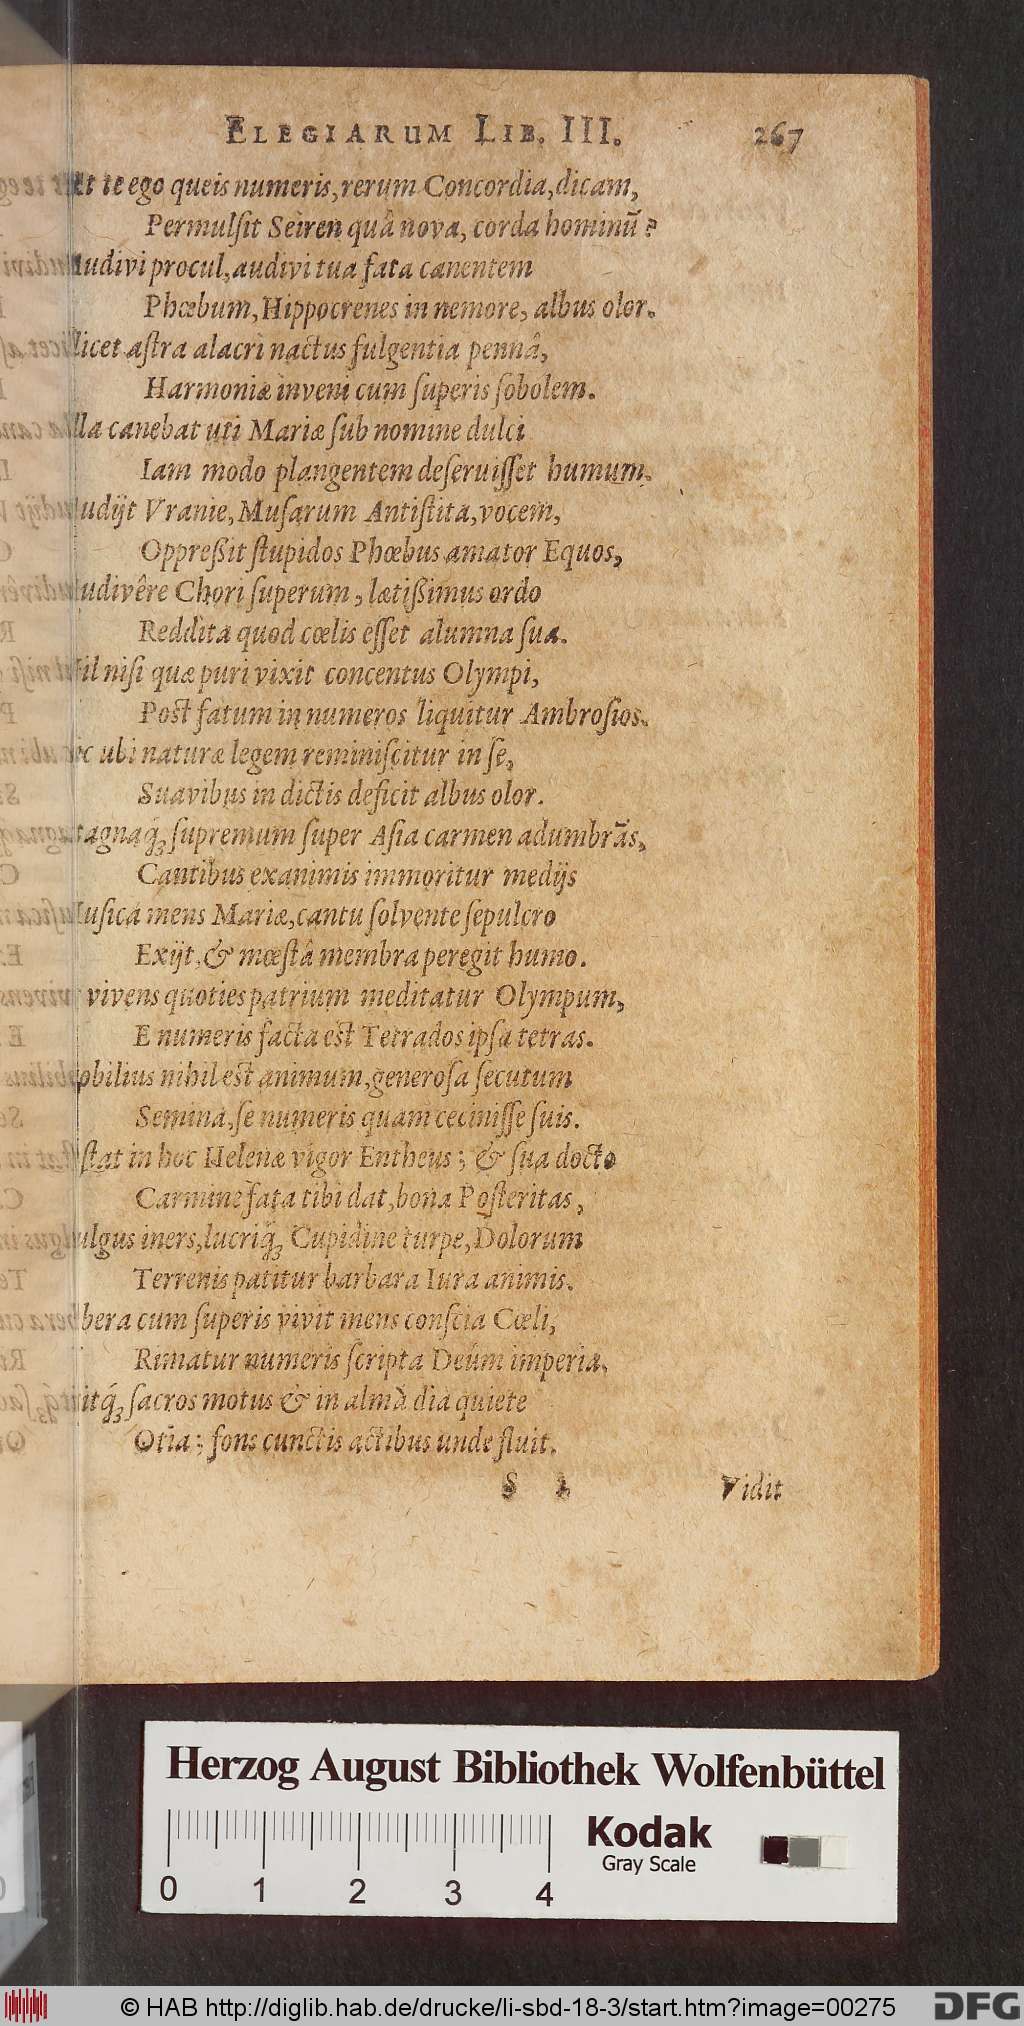 ELEGIARUM LIB. III. 267
At te ego queis numeris, rerum Concordia, dicam,
Permulſit Seiren quâ nova, corda hominũ?
Audivi procul, audivi tua fata canentem
Phœbum, Hippocrenes in nemore, albus olor.
licet aſtra alacri nactus fulgentia pennâ,
Harmoniæ inveni cum ſuperis ſobolem.
lla canebat uti Mariæ ſub nomine dulci
Iam modo plangentem deſeruiſſet humum.
Audijt Vranie, Muſarum Antiſtita, vocem,
Oppreßit ſtupidos Phœbus amator Equos,
Audivêre Chori ſuperum, lætißimus ordo
Reddita quod cœlis eſſet alumna ſua.
Nil niſi quæ puri vixit concentus Olympi,
Post fatum in numeros liquitur Ambroſios.
oc ubi naturæ legem reminiſcitur in ſe,
Suavibus in dictis deficit albus olor.
tagnaq́ꝫ ſupremum ſuper Aſia carmen adumbrãs,
Cantibus exanimis immoritur medijs
Muſica mens Mariæ, cantu ſolvente ſepulcro
Exijt, & mœſtâ membra peregit humo.
vivens quoties patrium meditatur Olympum,
E numeris facta est Tetrados ipſa tetras.
obilius nihil est animum, generoſa ſecutum
Semina, ſe numeris quam ceciniſſe ſuis.
ſtat in hoc Helenæ vigor Entheus; & ſua docto
Carmine fata tibi dat, bona Poſteritas,
ulgus iners, lucriq́ꝫ Cupidine turpe, Dolorum
Terrenis patitur barbara Iura animis.
bera cum ſuperis vivit mens conſcia Cœli,
Rimatur numeris ſcripta Deûm imperia.
itq́ꝫ ſacros motus & in almâ dia quiete
Otia; fons cunctis actibus unde fluit.
S 2 Vidit
Herzog August Bibliothek Wolfenbüttel
Kodak
Gray Scale
0 1 2 3 4
© HAB http://diglib.hab.de/drucke/li-sbd-18-3/start.htm?image=00275
DFG